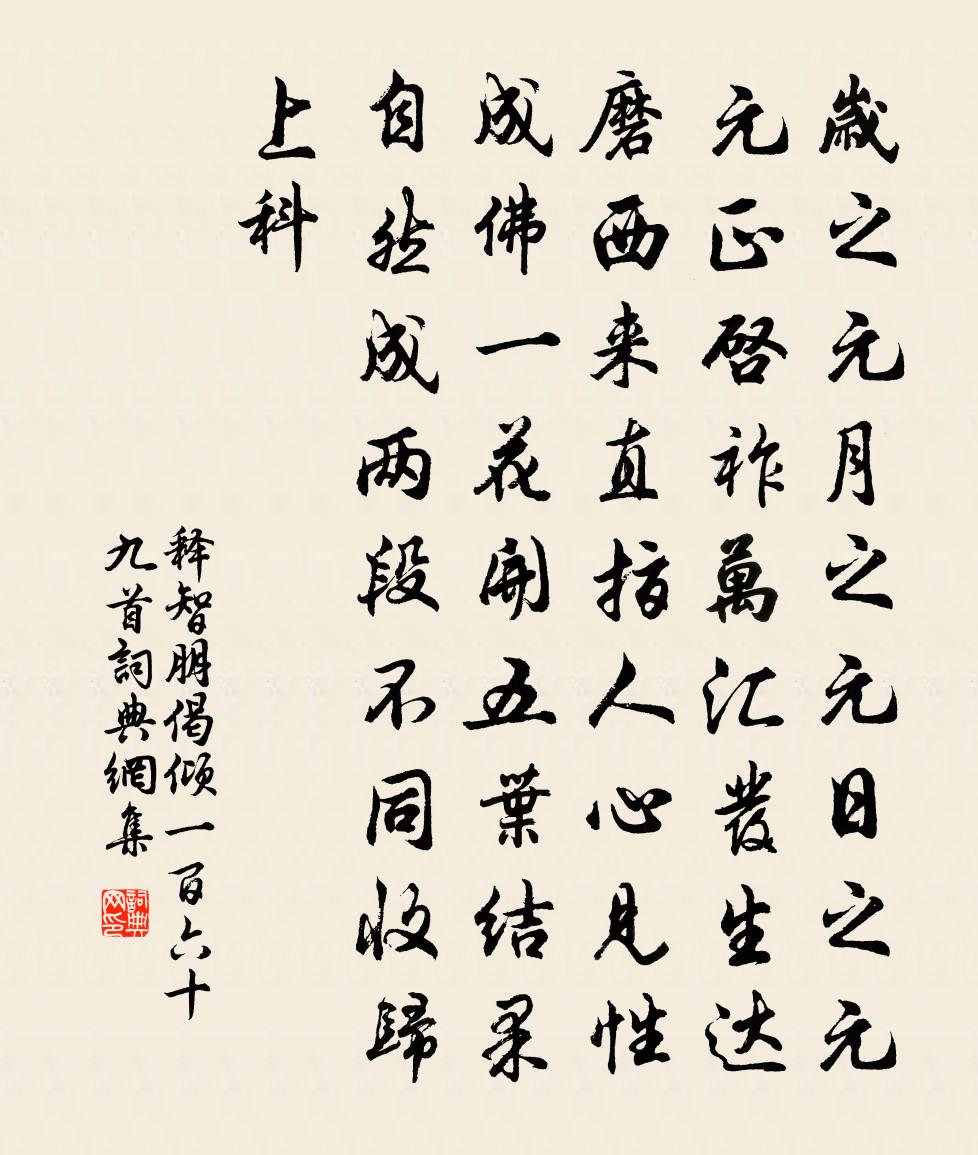 歲之元月之元日之元
元正啓祚萬汇發生达
磨西来直指人心見性
成佛一花開五葉结果
自然成两段不同收歸
上科
释智朋偈倾一百六十
九首詞典網集
詞典网印